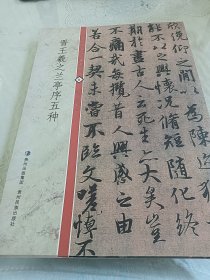 俛仰之閒以為陳迹猶
能不以之興懷況脩短隨化終
期於盡古人云死生亦大矣豈
不痛哉每攬昔人興感之由
若合一契未嘗不臨文嗟悼不
晋王羲之兰亭序五种
贵州出版集团